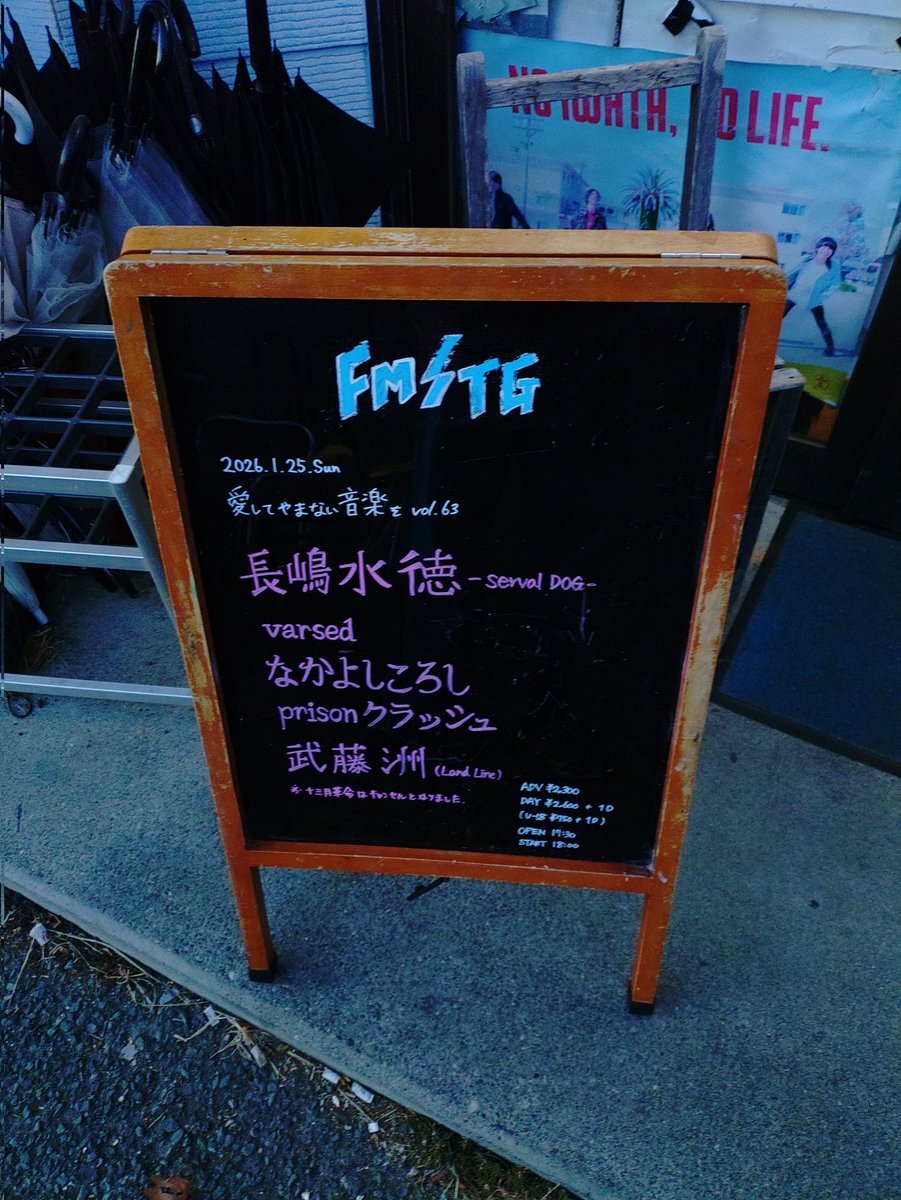 NO IWATA, NO LIFE.
FMSTG
2026.1.25.Sun
愛してやまない音楽を vol.63
長嶋水徳 -serval DOG-
varsed
なかよしころし
prisonクラッシュ
武藤洲 (Land Line)
※十三月革命はキャンセルとなりました.
ADV ¥2,300
DAY ¥2,600 + 1D
(U-18 ¥750 + 1D)
OPEN 17:30
START 18:00